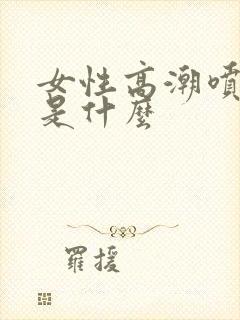 女性高潮噴
是什麼
羅援